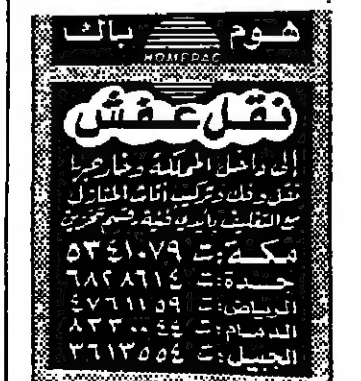 هوم باك
HOMEPAC
نقل عفش
إلى داخل المملكة وخارجها
نقل وفك وتركيب أثاث المنازل
مع التغليف بأيدي فنية قسم تخزين
مكة: ت ٥٣٤١٠٧٩
جدة: ت ٦٨٢٨٦١٤
الرياض: ت ٤٧٦١١٥٩
الدمام: ت ٨٣٣٠٠٤٤
الجبيل: ت ٣٦١٣٥٥٤